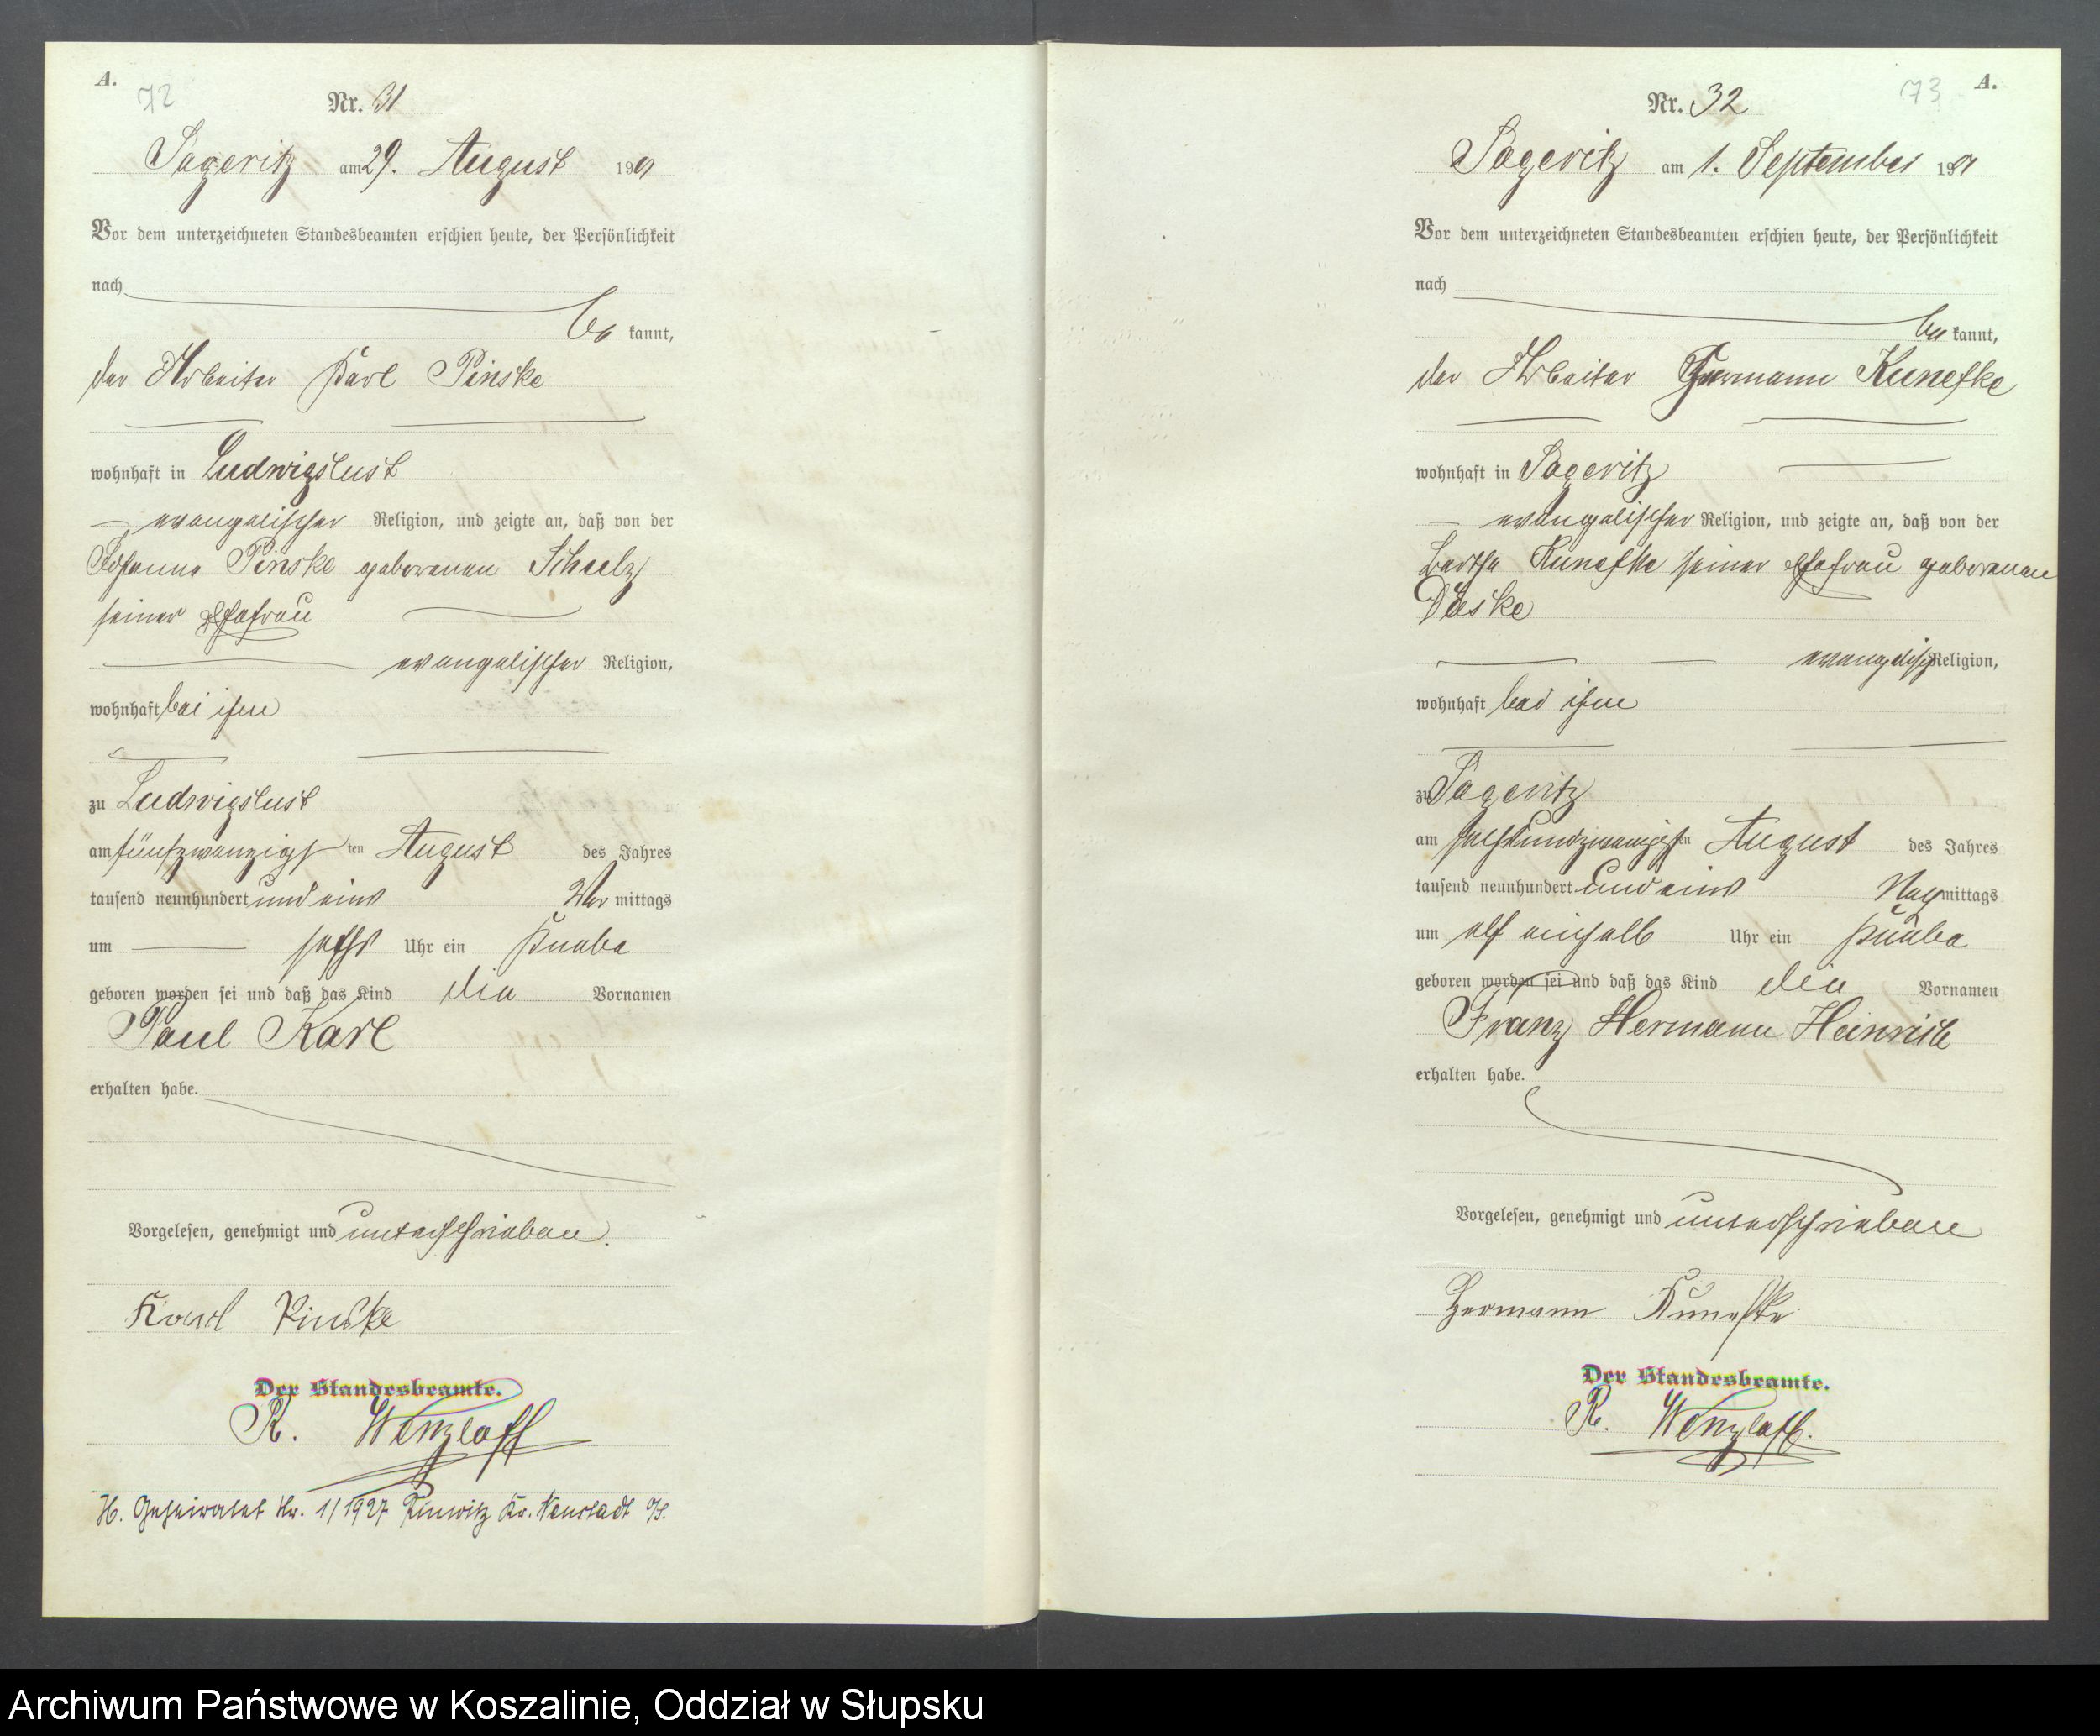 A.
72
Nr. 31
Sageritz am 29. August 1901
Vor dem unterzeichneten Standesbeamten erschien heute, der Persönlichkeit
nach
be kannt,
der Arbeiter Karl Pinske
wohnhaft in Ludwigslust
evangelischer Religion, und zeigte an, daß von der
Johanne Pinske geborenen Schulz
seiner Ehefrau
evangelischer Religion,
wohnhaft bei ihm
zu Ludwigslust
am fünfzwanzigs ten August des Jahres
tausend neunhundert und eins Vor mittags
um sechs Uhr ein Knabe
geboren worden sei und daß das Kind die Vornamen
Paul Karl
erhalten habe.
Vorgelesen, genehmigt und unterschrieben.
Karl Pinske
Der Standesbeamte.
R. Wenzlaff
H. Geheiratet Nr. 1/1927 Kr. Neustadt O/S.
73
A.
Nr. 32
Sageritz am 1. September 1901
Vor dem unterzeichneten Standesbeamten erschien heute, der Persönlichkeit
nach
be kannt,
der Arbeiter Hermann Kunefke
wohnhaft in Sageritz
evangelischer Religion, und zeigte an, daß von der
Bertha Kunefke seiner Ehefrau geborenen
evangelisch Religion,
wohnhaft bei ihm
zu Sageritz
am sechsundzwanzigsten August des Jahres
tausend neunhundert und eins Nach mittags
um elf einhalb Uhr ein Knabe
geboren worden sei und daß das Kind die Vornamen
Franz Hermann Heinrich
erhalten habe.
Vorgelesen, genehmigt und unterschrieben
Hermann Kunefke
Der Standesbeamte.
R. Wenzlaff.
Archiwum Państwowe w Koszalinie, Oddział w Słupsku